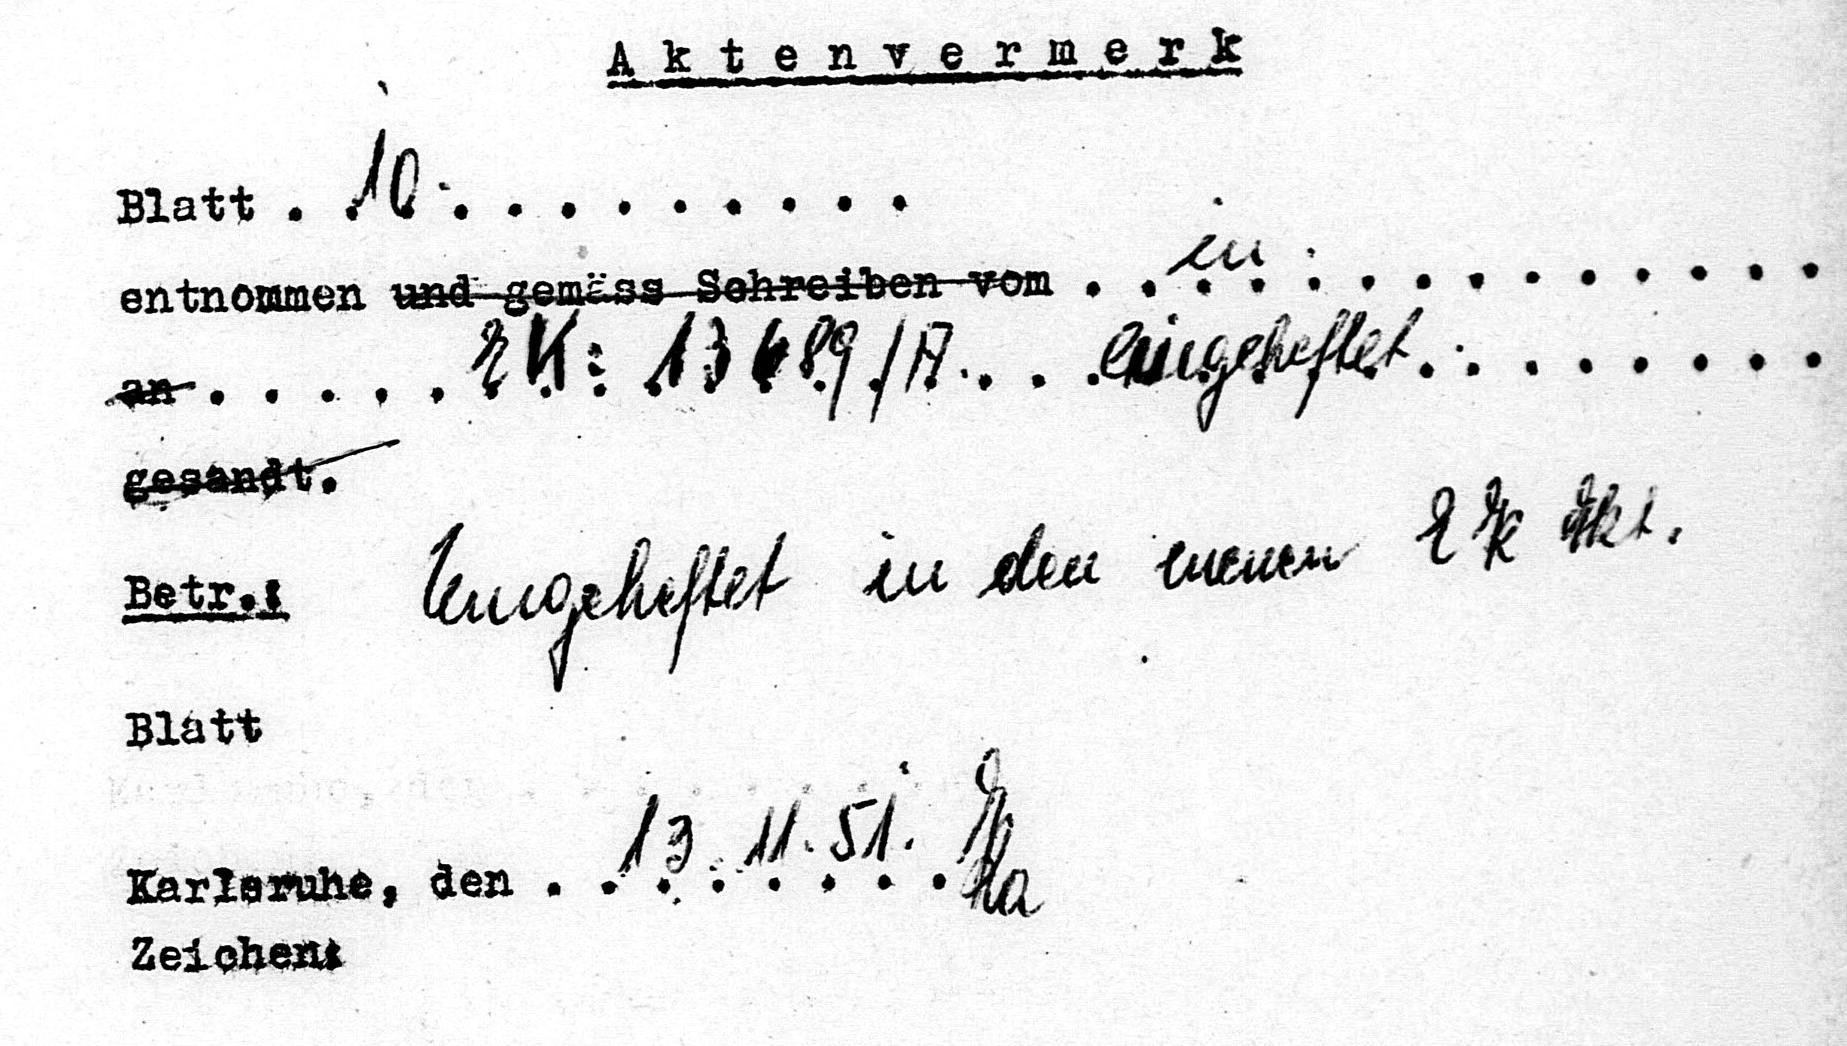 Aktenvermerk
Blatt . . 10 . . . . . . . . .
entnommen und gemäss Schreiben vom . . in . . . . . . . . . .
an . . . . . EK: 13 689/A. . . eingeheftet . . . . . . . .
gesandt.
Betr.: Eingeheftet in den neuen EK Akt.
Blatt
Karlsruhe, den . 13. 11. 51.
Zeichen: